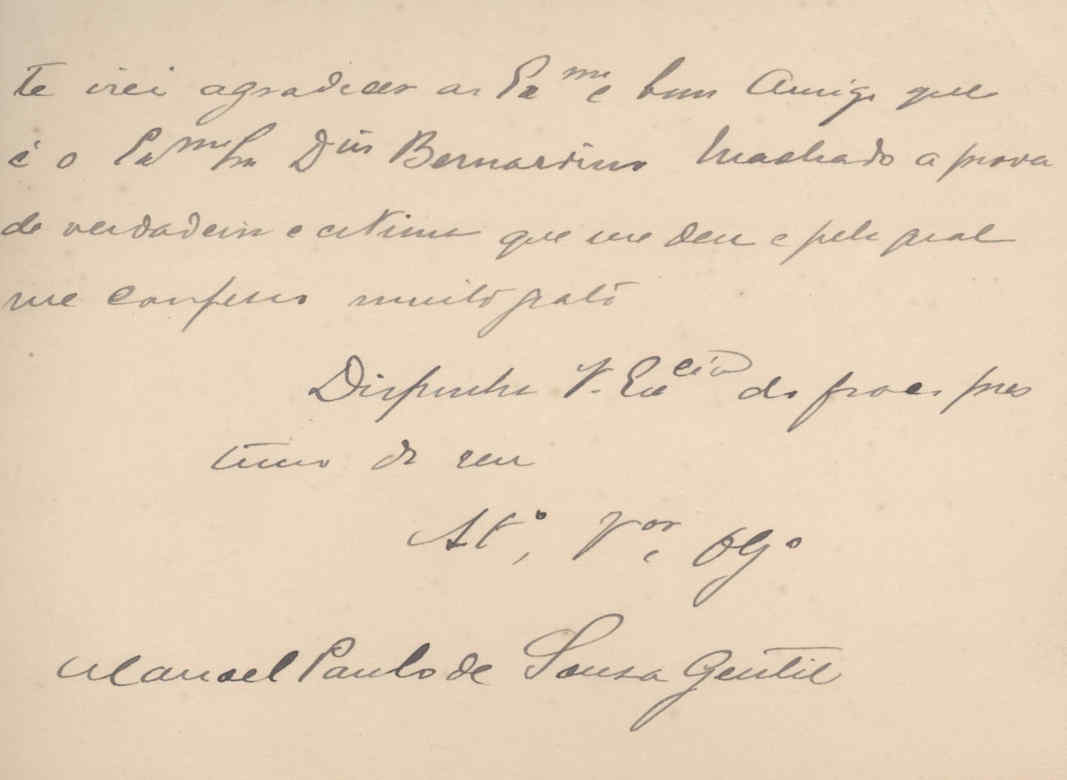 te irei agradecer ao Ex.mo e bom Amigo que
é o Ex.mo Sr. D.or Bernardino Machado a prova
de verdadeira estima que me deu e pela qual
me confesso muito grato
Disponha V. Ex.cia do fraco pres
timo do seu
At.º, V.or, Obg.º
Manoel Paulo de Sousa Gentil